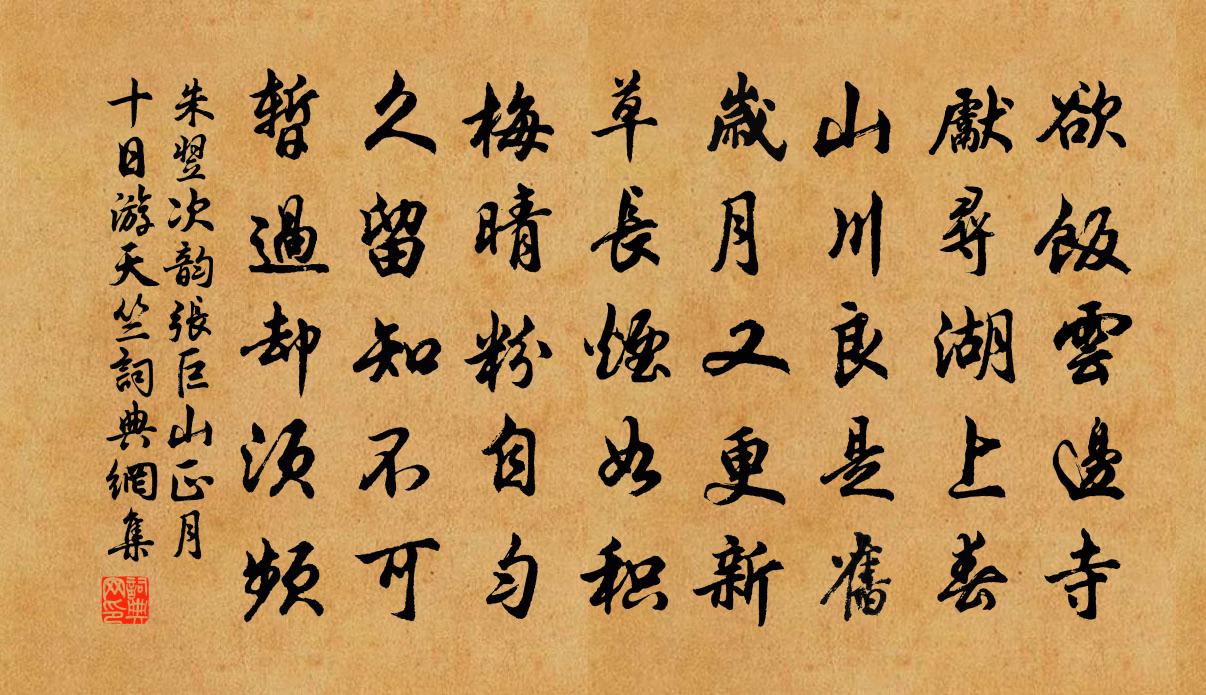 欲飯雲邊寺
獻尋湖上春
山川良是舊
歲月又更新
草長煙如积
梅晴粉自勻
久留知不可
暫過却須頻
朱翌次韵張巨山正月
十日游天竺詞典網集
詞典
网印